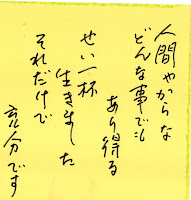 人間やからな
どんな事でも
あり得る
せい一杯
生きました
それだけで
充分です